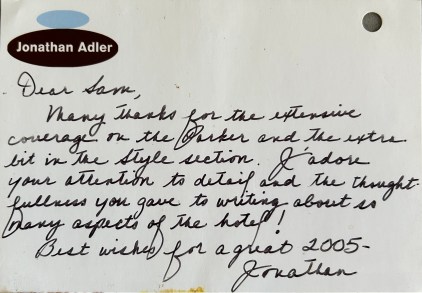 Jonathan Adler
Dear Sam,
Many thanks for the extensive
coverage on the Parker and the extra
bit in the Style section. J'adore
your attention to detail and the thought-
fullness you gave to writing about so
many aspects of the hotel!
Best wishes for a great 2005-
Jonathan